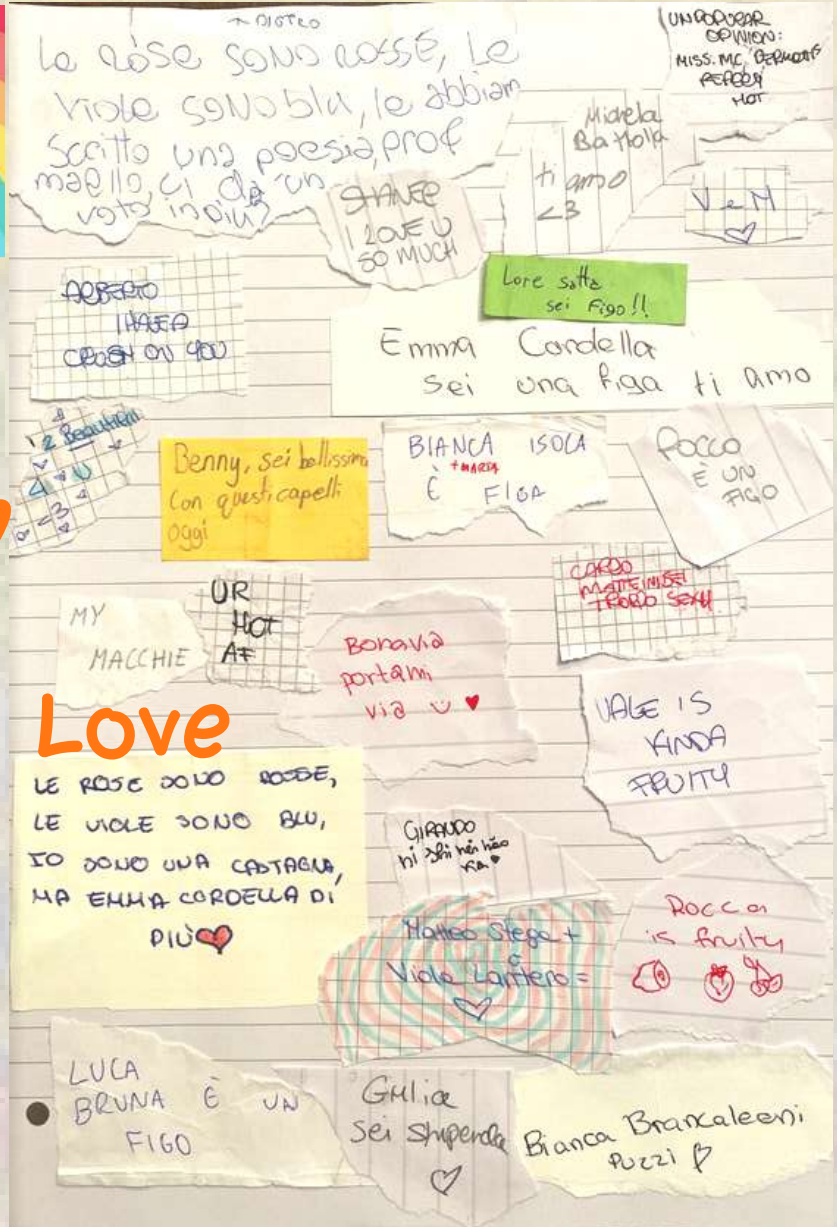 → DIETRO
Le rose SONO ROSSE, Le
Viole SONO blu, le abbiam
Scritto una poesia, prof
maello, ci dà un
voto in più?
UNPOPULAR
OPINION:
MISS. MC.
HOT
Michela
Battolla
ti amo
<3
SHANEE
I LOVE U
SO MUCH
V e M
ALBERTO
I HAVE A
CRUSH ON YOU
Lore satta
sei figo!!
Emma Cordella
sei una figa ti amo
2 Beautiful
4 U
<3
Benny, sei bellissima
Con questi capelli
oggi
BIANCA ISOLA
+ MARTA
È FIGA
ROCCO
È UN
FIGO
MY
MACCHIE
UR
HOT
AF
Bonavia
portami
via ♥
CARDO
MATTEINI SEI
TROPPO SEXY
VALE IS
KINDA
FRUITY
Love
LE ROSE SONO ROSSE,
LE VIOLE SONO BLU,
IO SONO UNA CASTAGNA,
MA EMMA CORDELLA DI
PIÙ
GIRANDO
ni shi hén hǎo
Matteo Stega +
Viola Lantero =
Rocca
is fruity
LUCA
BRUNA È UN
FIGO
Giulia
Sei stupenda
Bianca Brancaleoni
Puzzi